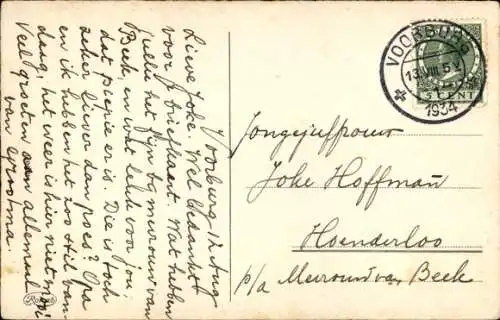 Voorburg, 12 Aug
Lieve Joke. Wel bedankt
voor je briefkaart. Wat hebben
jullie het fijn bij mevrouw van
Beek, en wat leuk voor jou
dat poesie er is. Die is toch
zeker liever dan poes? Opa
en ik hebben het zoo stil van-
daag, het weer is hier niet mooi
Veel groeten aan allemaal
van Grootma.
VOORBURG
13.VIII 5
1934
5 CENT
Jongejuffrouw
Joke Hoffman
Hoenderloo
p/a Mevrouw van Beek